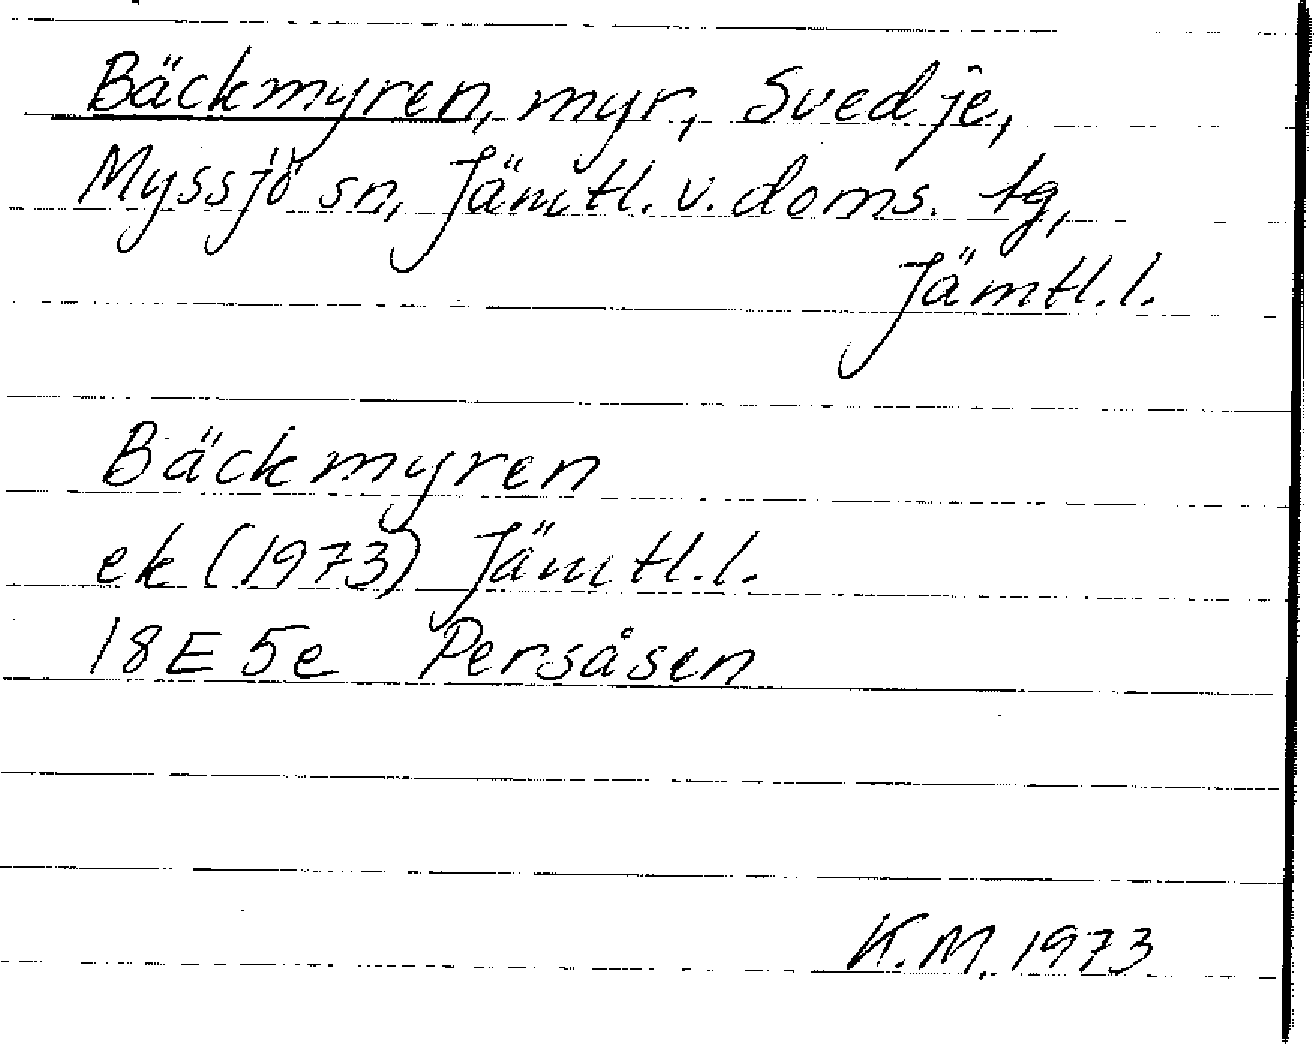 Bäckmyren, myr, Svedje,
Myssjö sn, Jämtl. v. doms. tg,
Jämtl. l.
Bäckmyren
ek (1973) Jämtl. l.
18E 5e Persåsen
K.M. 1973